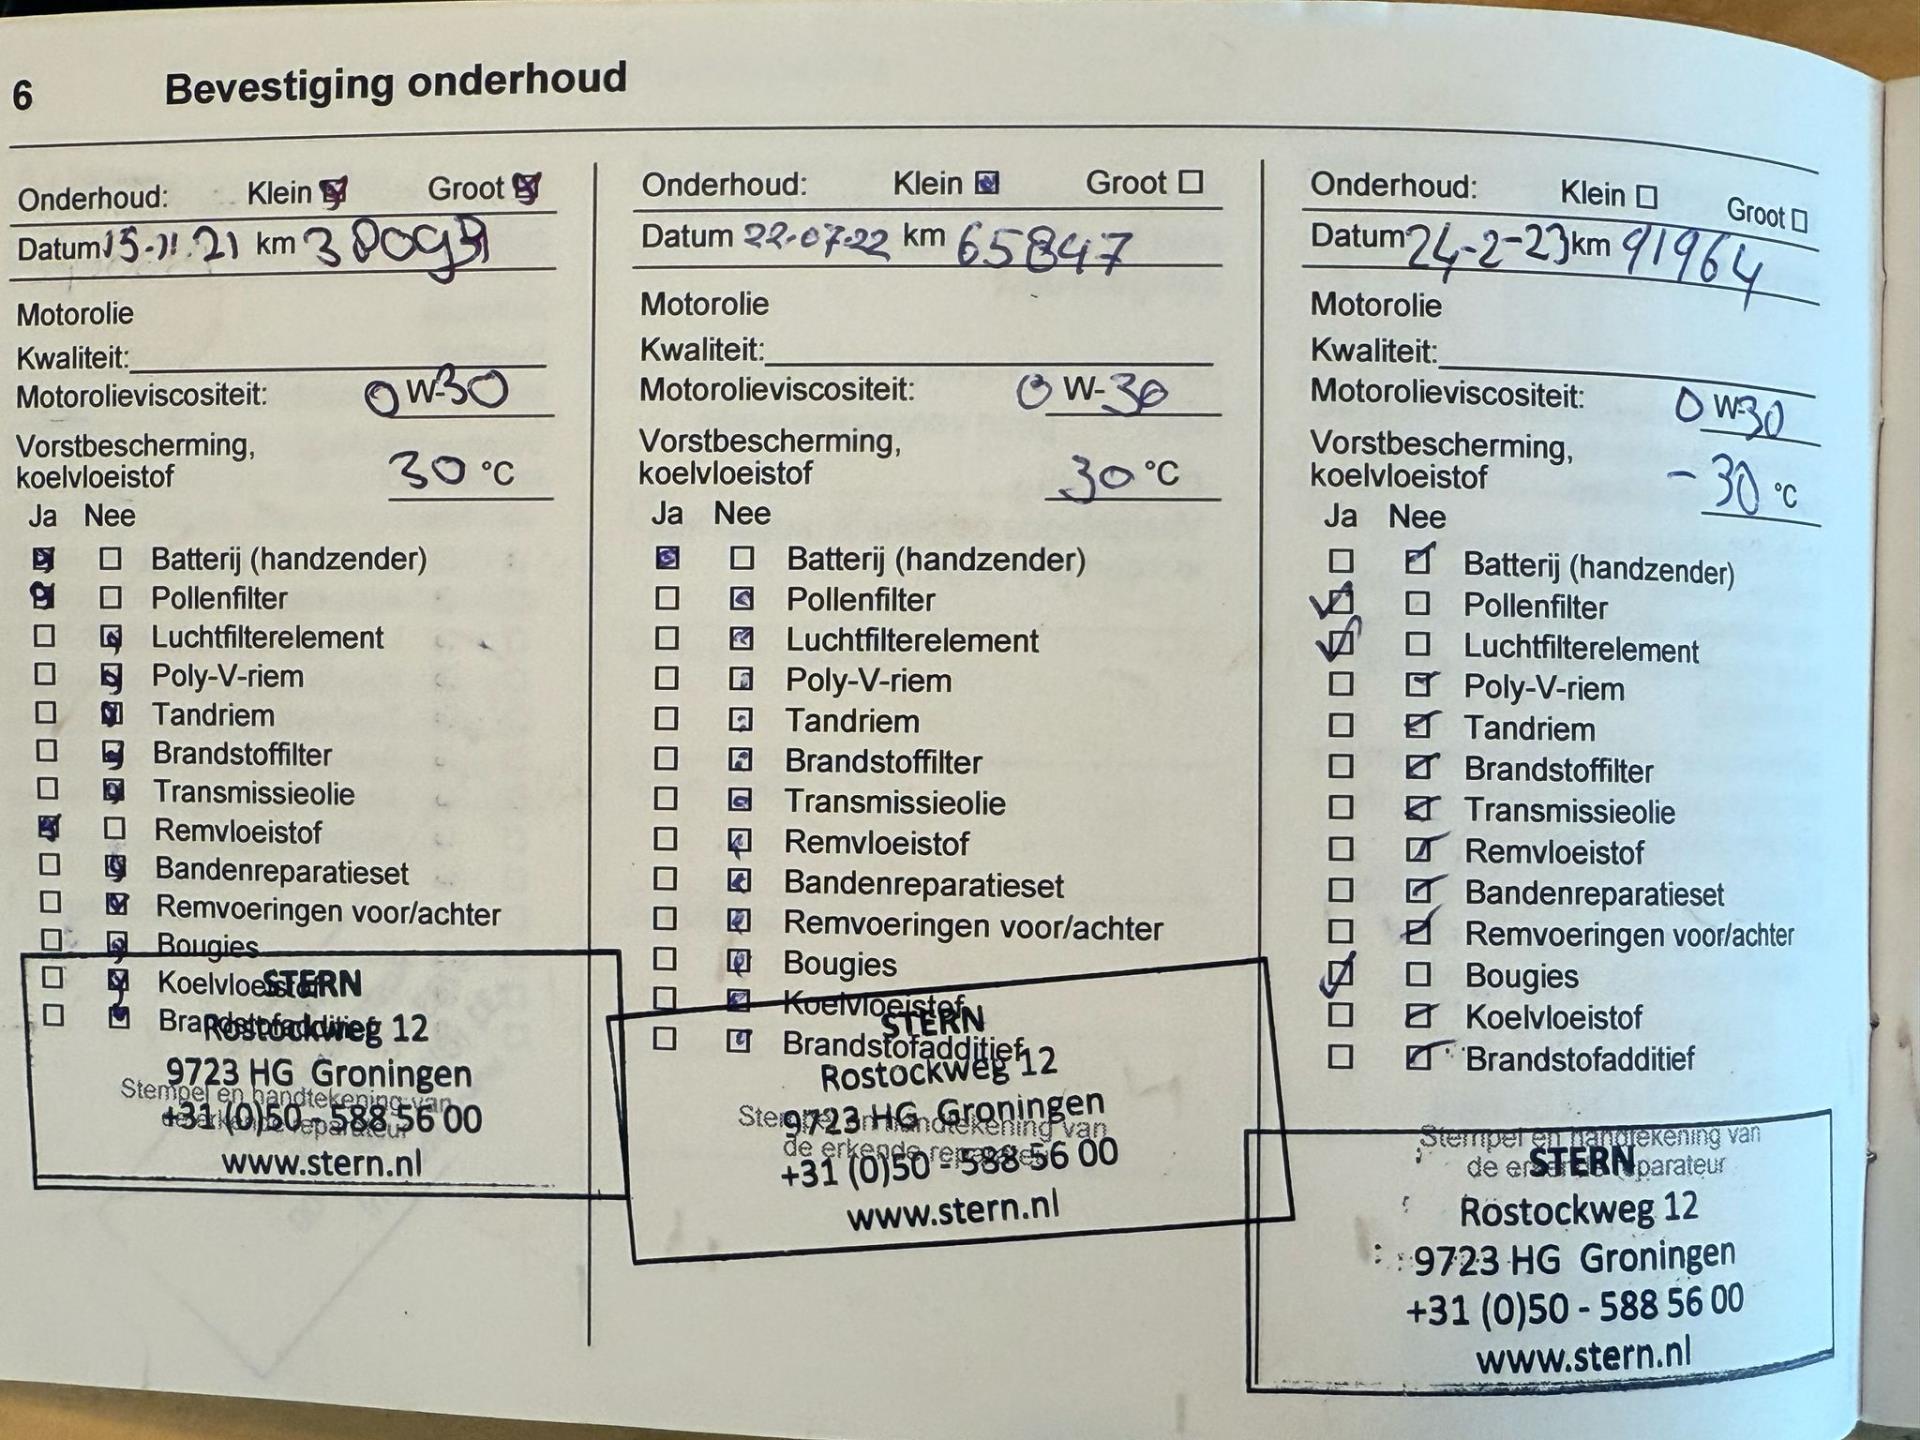 6 Bevestiging onderhoud
Onderhoud: Klein Groot
Datum 15-11-21 km
Motorolie
Kwaliteit:
Motorolieviscositeit: 0 W-30
Vorstbescherming,
koelvloeistof 30 °C
Ja Nee
Batterij (handzender)
Pollenfilter
Luchtfilterelement
Poly-V-riem
Tandriem
Brandstoffilter
Transmissieolie
Remvloeistof
Bandenreparatieset
Remvoeringen voor/achter
Bougies
Koelvloeistof
Brandstofadditief
Stempel en handtekening van
de erkende reparateur
STERN
Rostockweg 12
9723 HG Groningen
+31 (0)50 - 588 56 00
www.stern.nl
Onderhoud: Klein Groot
Datum 22-07-22 km 65847
Motorolie
Kwaliteit:
Motorolieviscositeit: 0 W-30
Vorstbescherming,
koelvloeistof 30 °C
Ja Nee
Batterij (handzender)
Pollenfilter
Luchtfilterelement
Poly-V-riem
Tandriem
Brandstoffilter
Transmissieolie
Remvloeistof
Bandenreparatieset
Remvoeringen voor/achter
Bougies
Koelvloeistof
Brandstofadditief
Stempel en handtekening van
de erkende reparateur
STERN
Rostockweg 12
9723 HG Groningen
+31 (0)50 - 588 56 00
www.stern.nl
Onderhoud: Klein Groot
Datum 24-2-23 km 91964
Motorolie
Kwaliteit:
Motorolieviscositeit: 0 W-30
Vorstbescherming,
koelvloeistof -30 °C
Ja Nee
Batterij (handzender)
Pollenfilter
Luchtfilterelement
Poly-V-riem
Tandriem
Brandstoffilter
Transmissieolie
Remvloeistof
Bandenreparatieset
Remvoeringen voor/achter
Bougies
Koelvloeistof
Brandstofadditief
Stempel en handtekening van
de erkende reparateur
STERN
Rostockweg 12
9723 HG Groningen
+31 (0)50 - 588 56 00
www.stern.nl